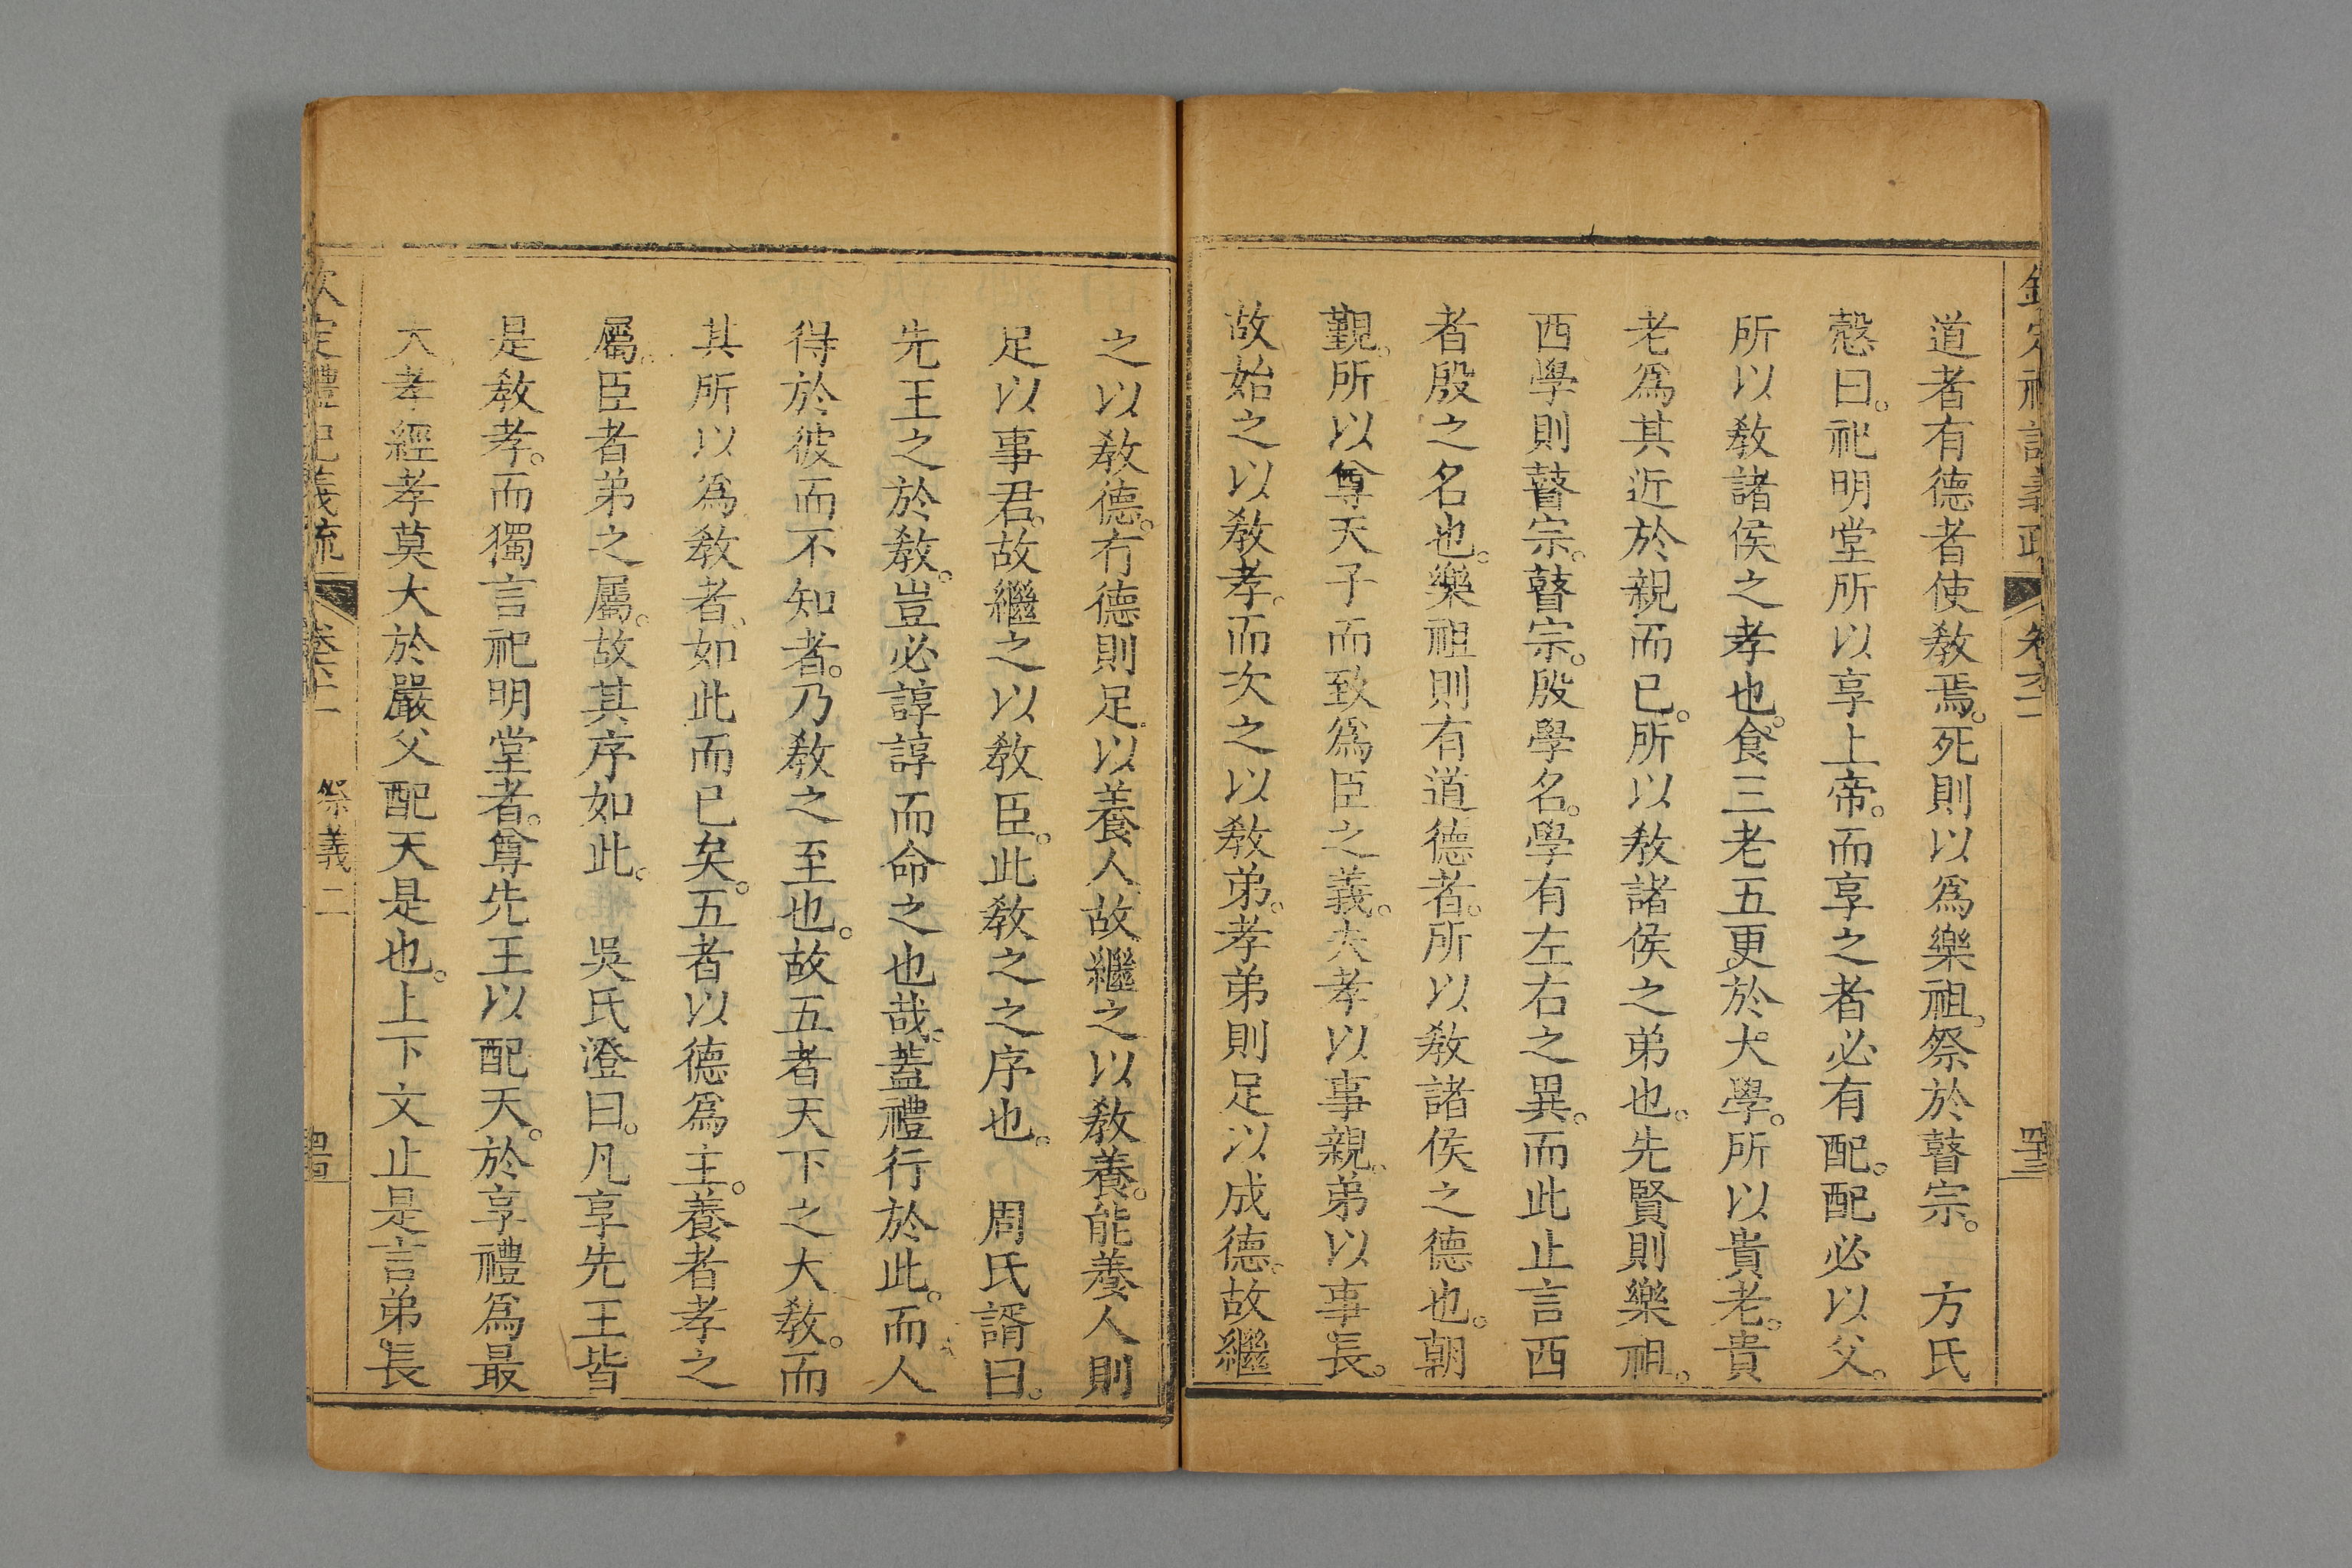 道者有德者使敎焉。死則以爲樂祖。祭於瞽宗。　方氏
慤曰。祀明堂所以享上帝。而享之者必有配。配必以父。
所以敎諸侯之孝也。食三老五更於大學。所以貴老。貴
老爲其近於親而已。所以敎諸侯之弟也。先賢則樂祖。
西學則瞽宗。瞽宗。殷學名。學有左右之異。而此止言西
者殷之名也。樂祖則有道德者。所以敎諸侯之德也。朝
覲。所以尊天子而致爲臣之義。夫孝以事親。弟以事長。
故始之以敎孝。而次之以敎弟。孝弟則足以成德。故繼
之以敎德。有德則足以養人故繼之以敎養。能養人則
足以事君。故繼之以敎臣。此敎之之序也。　周氏諝曰。
先王之於敎。豈必諄諄而命之也哉。蓋禮行於此。而人
得於彼而不知者。乃敎之至也。故五者天下之大敎。而
其所以爲敎者。如此而已矣。五者以德爲主。養者孝之
屬。臣者弟之屬。故其序如此。　吳氏澄曰。凡享先王皆
是敎孝。而獨言祀明堂者。尊先王以配天。於享禮爲最
大孝經孝莫大於嚴父配天是也。上下文止是言弟長
欽定禮記義疏　卷六十一　祭義二